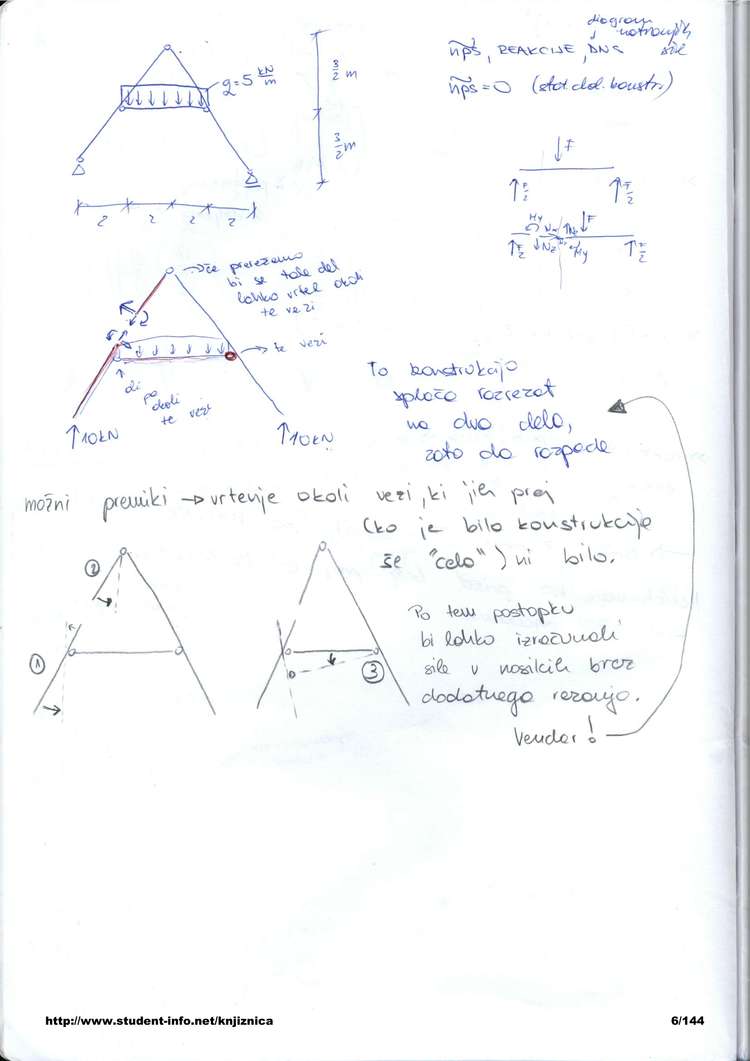 diagram
notranjih
ñps, REAKCIJE, DNS sil
ñps = 0 (stat. dol. konstr.)
q=5 kN/m
3/2 m
3/2 m
2 2 2 2
F
F/2 F/2
My Nx Nz F
F/2 Nz My F/2
če prerežemo
bi se tale del
lahko vrtel okoli
te vezi
te vezi
ali
pa
okoli
te vezi
10kN
10kN
To konstrukcijo
splača razrezat
na dva dela,
zato da razpade
možni premiki → vrtenje okoli vezi, ki jih prej
(ko je bila konstrukcija
še "cela") ni bilo.
2
1
3
Po tem postopku
bi lahko izračunali
sile v nosilcih brez
dodatnega rezanja.
Vendar!
http://www.student-info.net/knjiznica
6/144